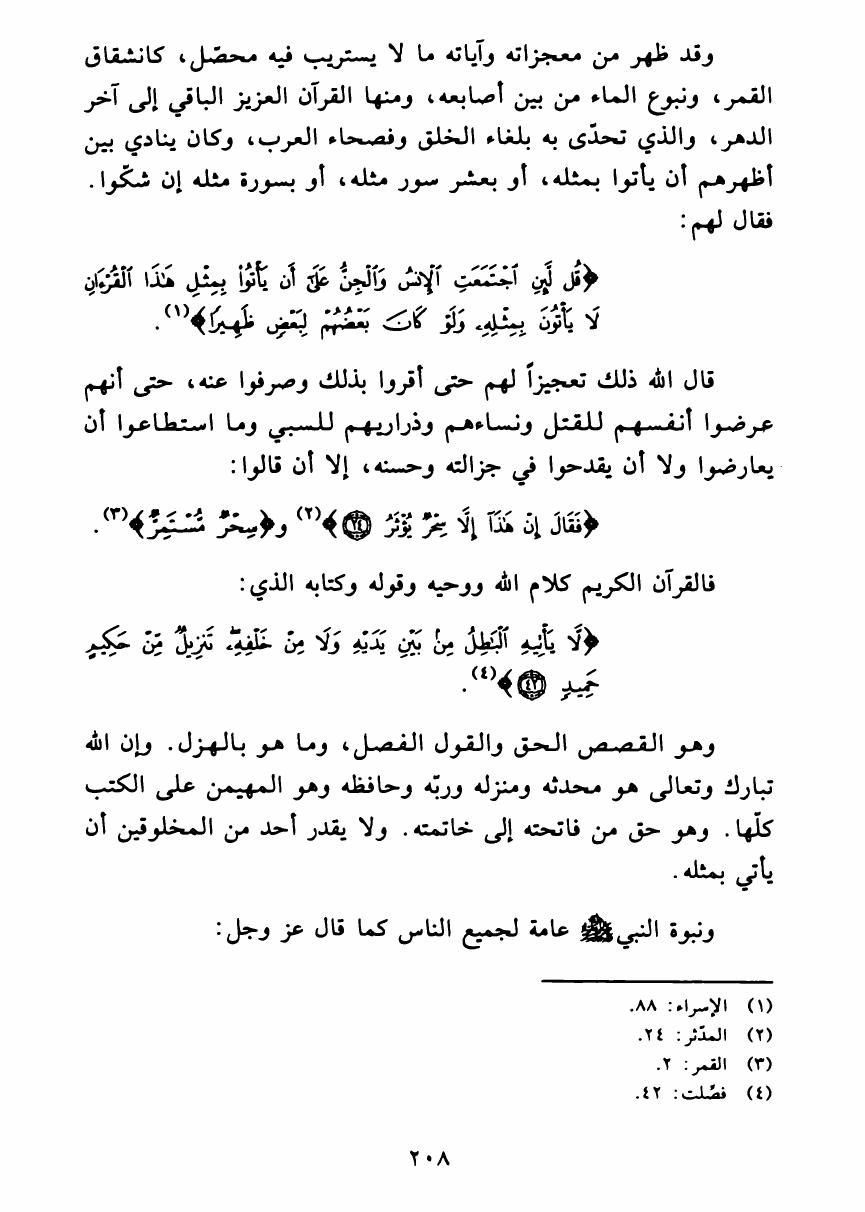 وقد ظهر من معجزاته وآياته ما لا يستريب فيه محصّل، كانشقاق
القمر، ونبوع الماء من بين أصابعه، ومنها القرآن العزيز الباقي إلى آخر
الدهر، والذي تحدّى به بلغاء الخلق وفصحاء العرب، وكان ينادي بين
أظهرهم أن يأتوا بمثله، أو بعشر سور مثله، أو بسورة مثله إن شكّوا.
فقال لهم:
﴿قُل لَّئِنِ ٱجْتَمَعَتِ ٱلْإِنسُ وَٱلْجِنُّ عَلَىٰٓ أَن يَأْتُوا۟ بِمِثْلِ هَـٰذَا ٱلْقُرْءَانِ
لَا يَأْتُونَ بِمِثْلِهِۦ وَلَوْ كَانَ بَعْضُهُمْ لِبَعْضٍ ظَهِيرًا﴾(١).
قال الله ذلك تعجيزاً لهم حتى أقروا بذلك وصرفوا عنه، حتى أنهم
عرضوا أنفسهم للقتل ونساءهم وذراريهم للسبي وما استطاعوا أن
يعارضوا ولا أن يقدحوا في جزالته وحسنه، إلا أن قالوا:
﴿فَقَالَ إِنْ هَـٰذَآ إِلَّا سِحْرٌ يُؤْثَرُ ٢٤﴾(٢) و﴿سِحْرٌ مُّسْتَمِرٌّ﴾(٣).
فالقرآن الكريم كلام الله ووحيه وقوله وكتابه الذي:
﴿لَّا يَأْتِيهِ ٱلْبَـٰطِلُ مِنۢ بَيْنِ يَدَيْهِ وَلَا مِنْ خَلْفِهِۦ ۖ تَنزِيلٌ مِّنْ حَكِيمٍ
حَمِيدٍ ٤٢﴾(٤).
وهو القصص الحق والقول الفصل، وما هو بالهزل. وإن الله
تبارك وتعالى هو محدثه ومنزله وربّه وحافظه وهو المهيمن على الكتب
كلّها. وهو حق من فاتحته إلى خاتمته. ولا يقدر أحد من المخلوقين أن
يأتي بمثله.
ونبوة النبي ﷺ عامة لجميع الناس كما قال عز وجل:
(١) الإسراء: ٨٨.
(٢) المدّثر: ٢٤.
(٣) القمر: ٢.
(٤) فصّلت: ٤٢.
٢٠٨